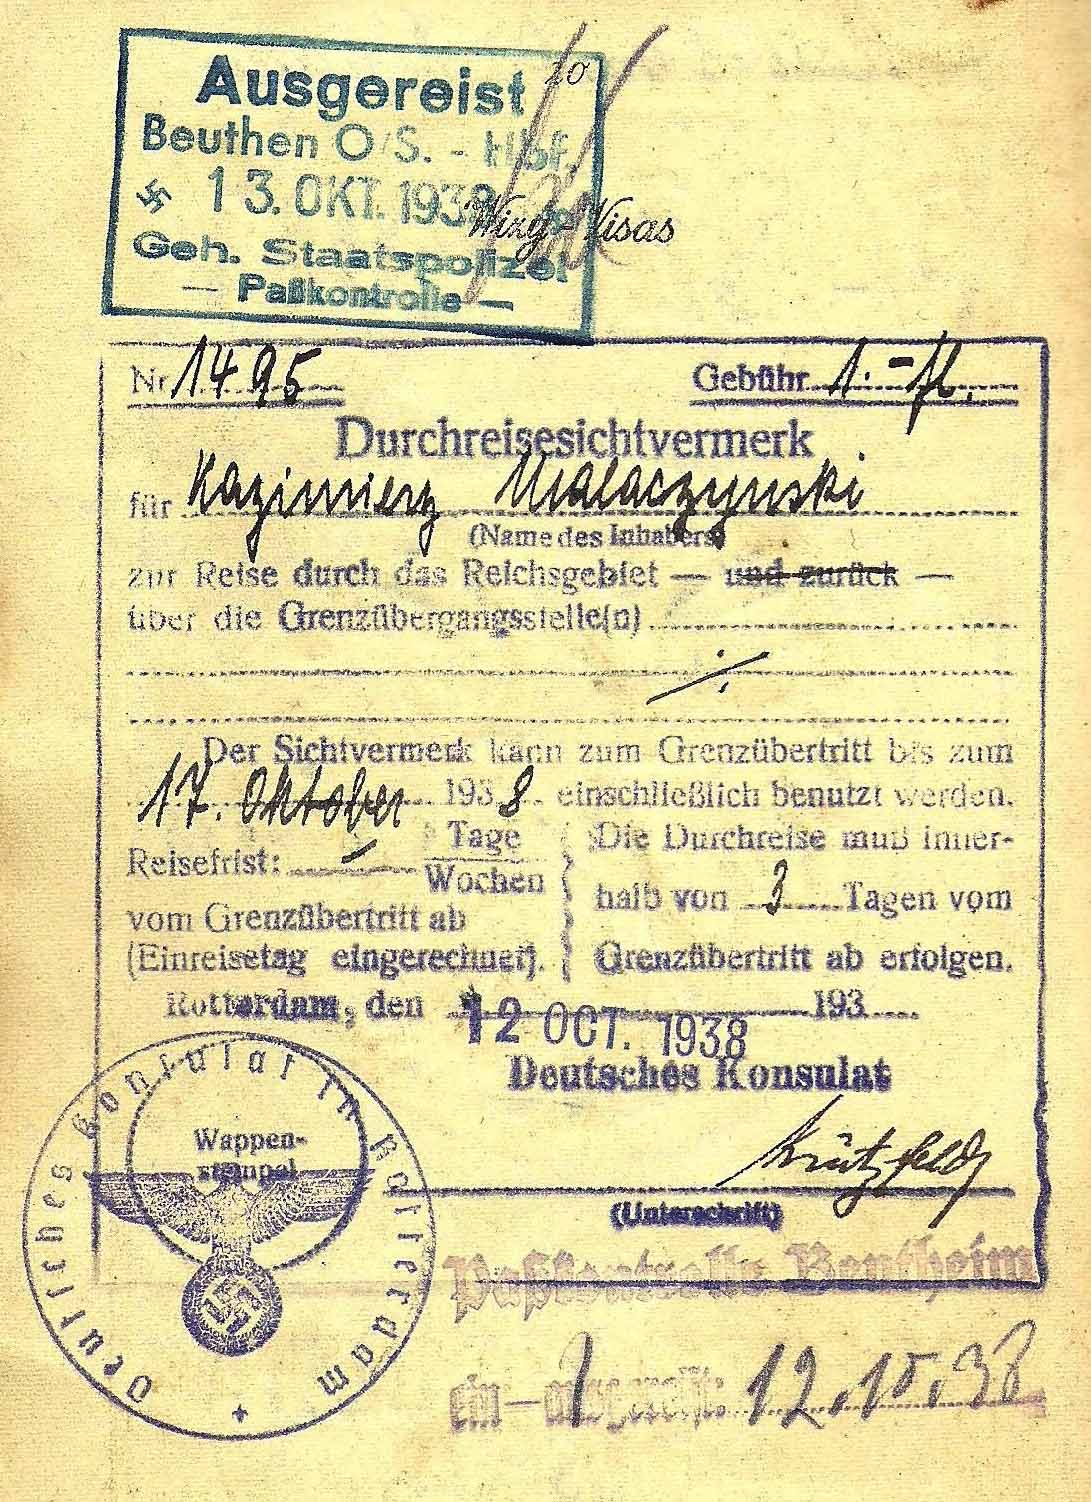 Ausgereist
Beuthen O/S. - Hbf.
13. OKT. 1938
Geh. Staatspolizei
— Paßkontrolle —
Wizy - Visas
Nr. 1495
Gebühr 1.- fl.
Durchreisesichtvermerk
für Kazimierz Malaczynski
(Name des Inhabers)
zur Reise durch das Reichsgebiet — und zurück —
über die Grenzübergangsstelle(n)
Der Sichtvermerk kann zum Grenzübertritt bis zum
17. Oktober 1938 einschließlich benutzt werden.
Reisefrist: — Tage
Wochen
vom Grenzübertritt ab
(Einreisetag eingerechnet).
Die Durchreise muß inner-
halb von 3 Tagen vom
Grenzübertritt ab erfolgen.
Rotterdam, den 193
12 OCT. 1938
Deutsches Konsulat
Wappen-
stempel
Deutsches Konsulat in Rotterdam
Krützfeld
(Unterschrift)
Paßkontrolle Bentheim
ein - ausgereist: 12.10.38